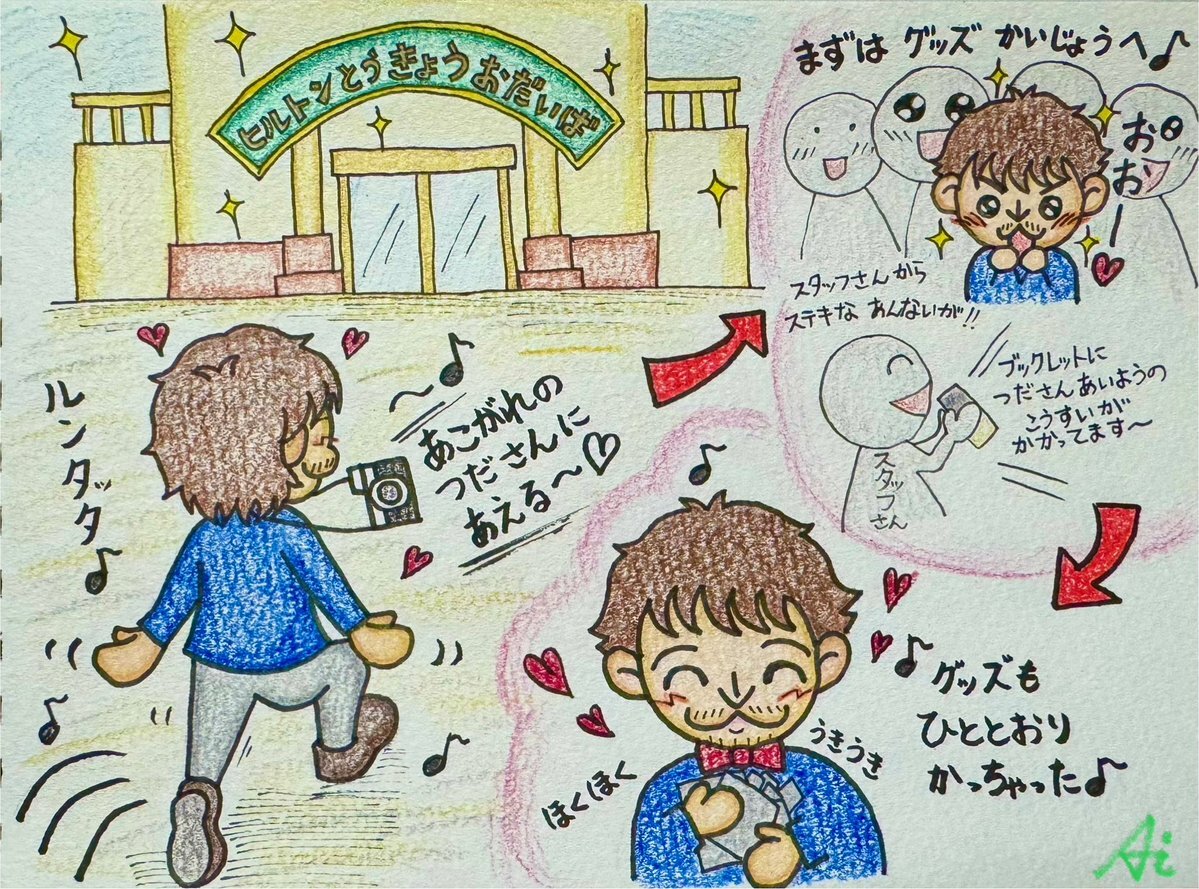 ヒルトンとうきょうおだいば
ルンタッタ♪
あこがれの
つださんに
あえる〜♡
まずは グッズ かいじょうへ♪
おおー
スタッフさんから
ステキな あんないが!!
ブックレットに
つださんあいようの
こうすいが
かかってます〜
スタッフさん
グッズも
ひととおり
かっちゃった♪
うきうき
ほくほく
Ai